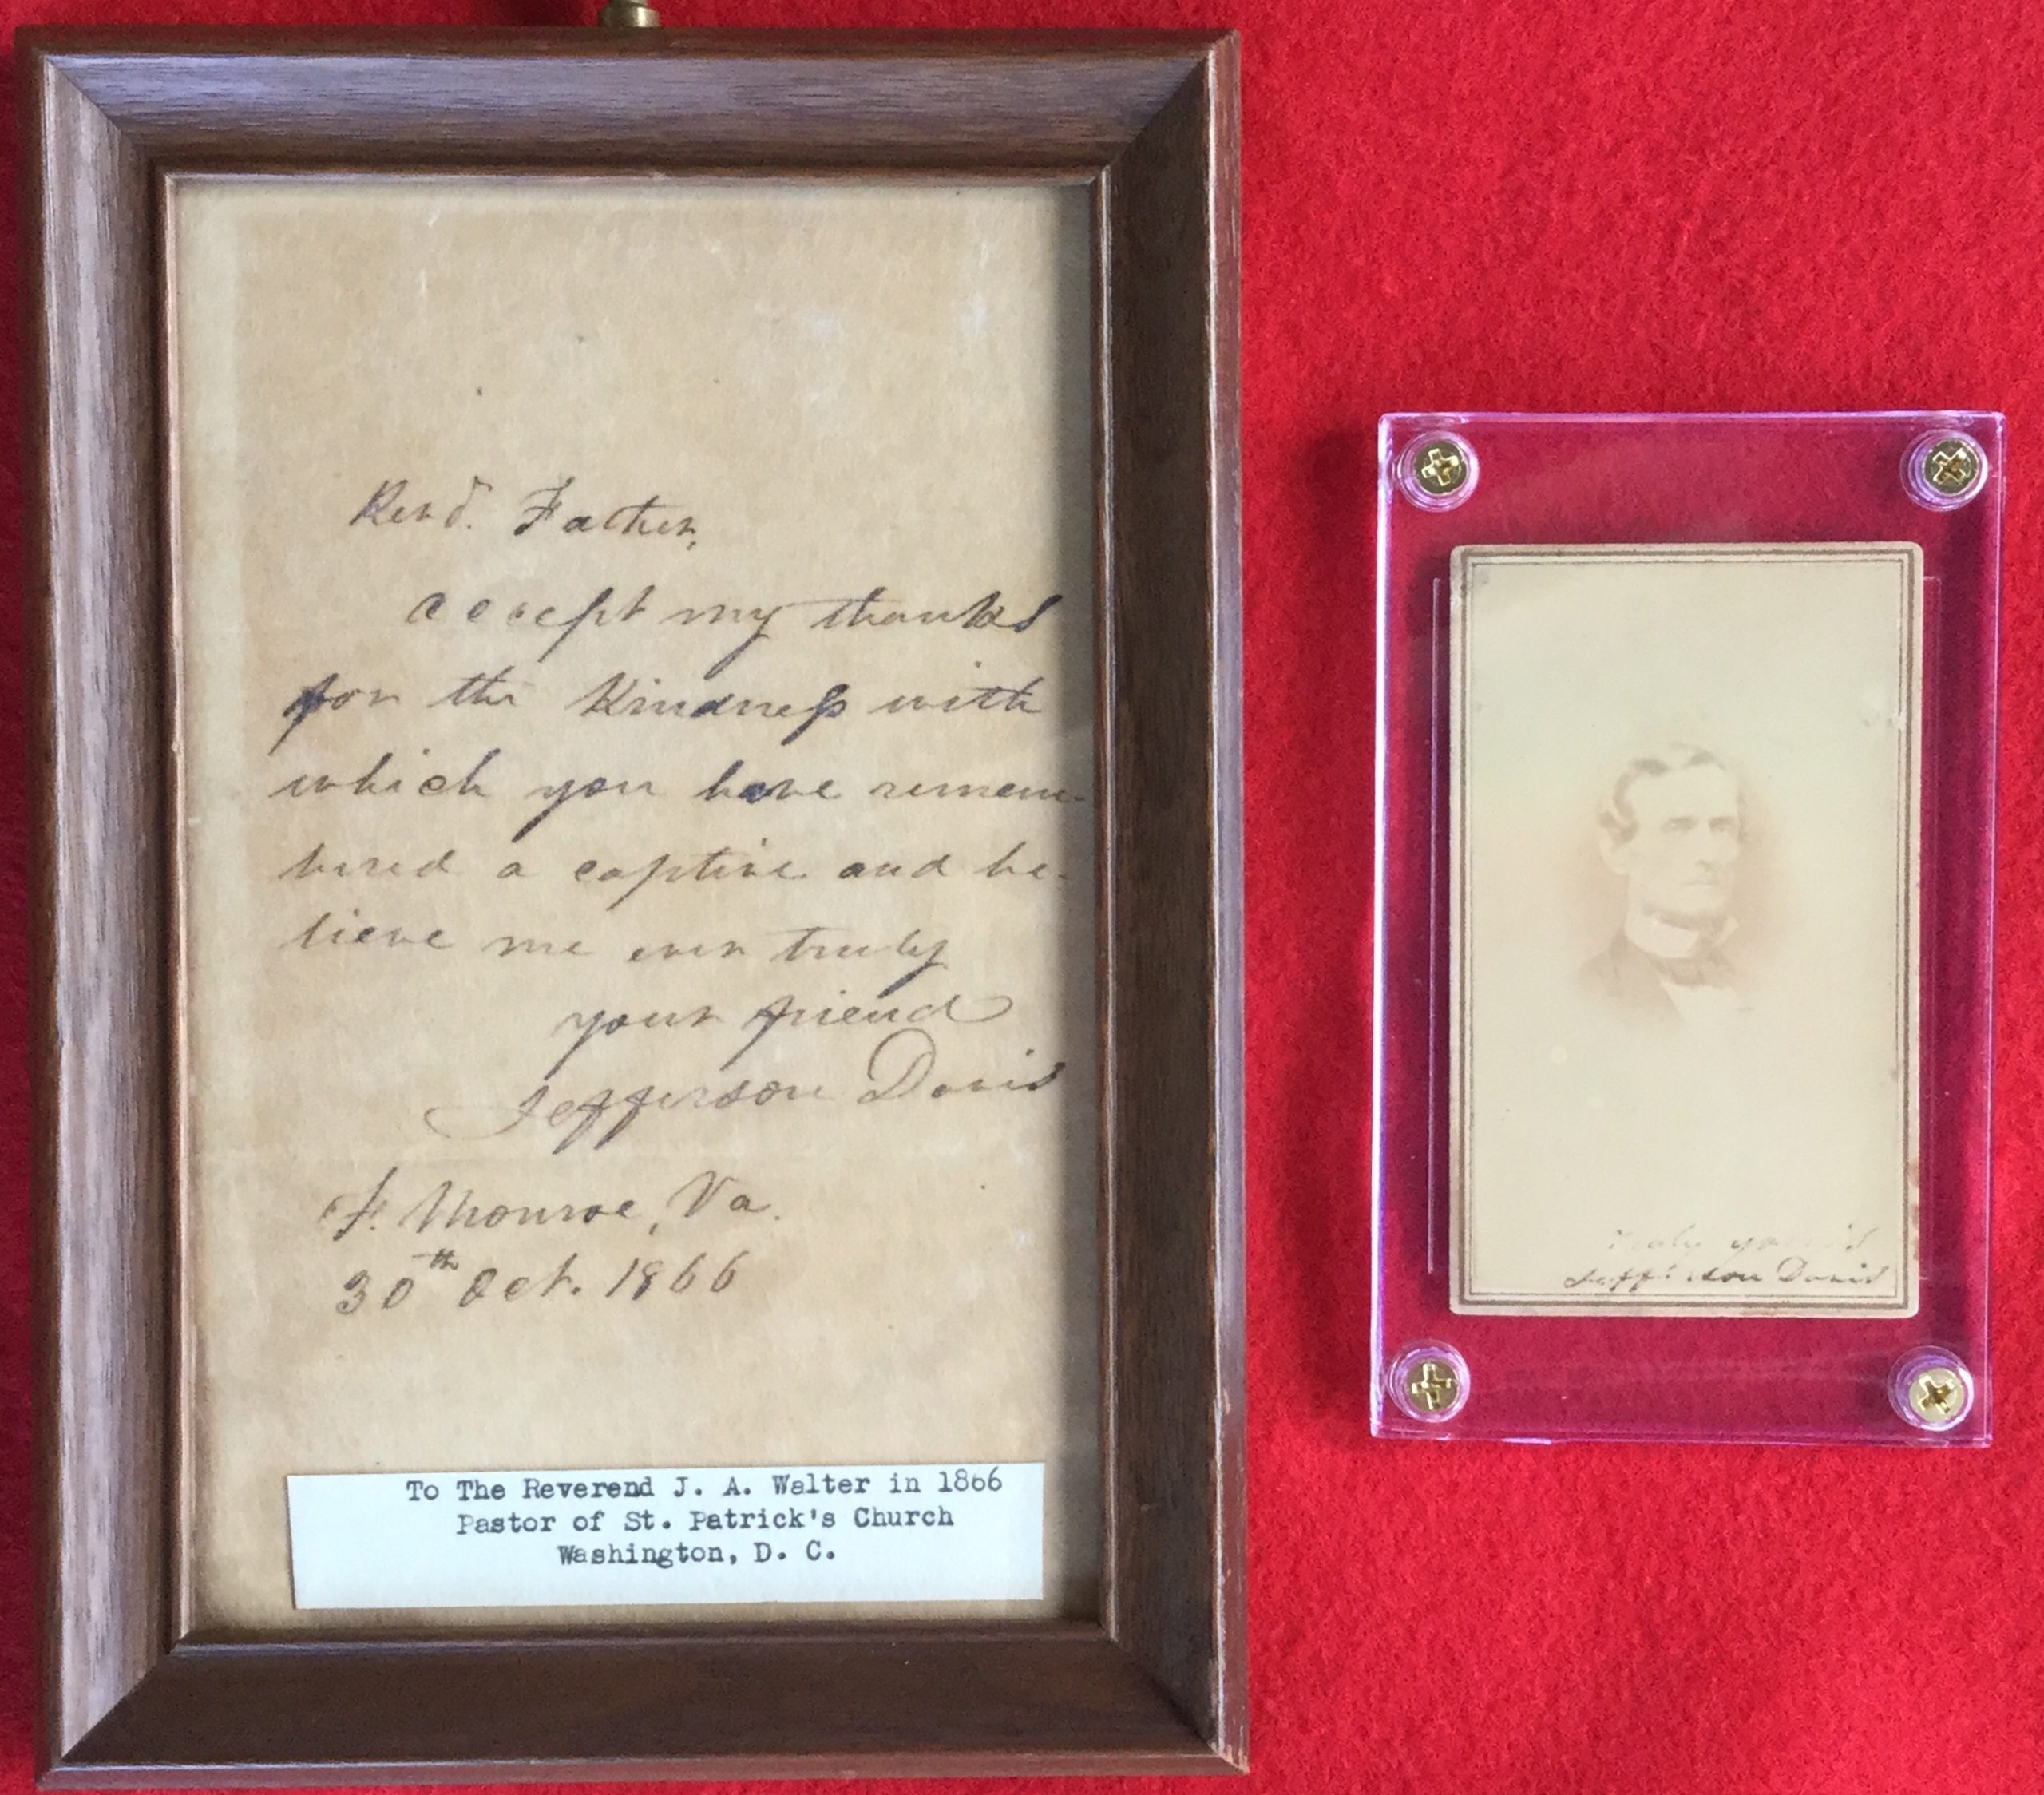 Revd. Father,
accept my thanks
for the Kindness with
which you have remem-
bered a captive and be-
lieve me ever truly
your friend
Jefferson Davis
F. Monroe, Va.
30th Oct. 1866
To The Reverend J. A. Walter in 1866
Pastor of St. Patrick's Church
Washington, D. C.
truly yours
Jefferson Davis